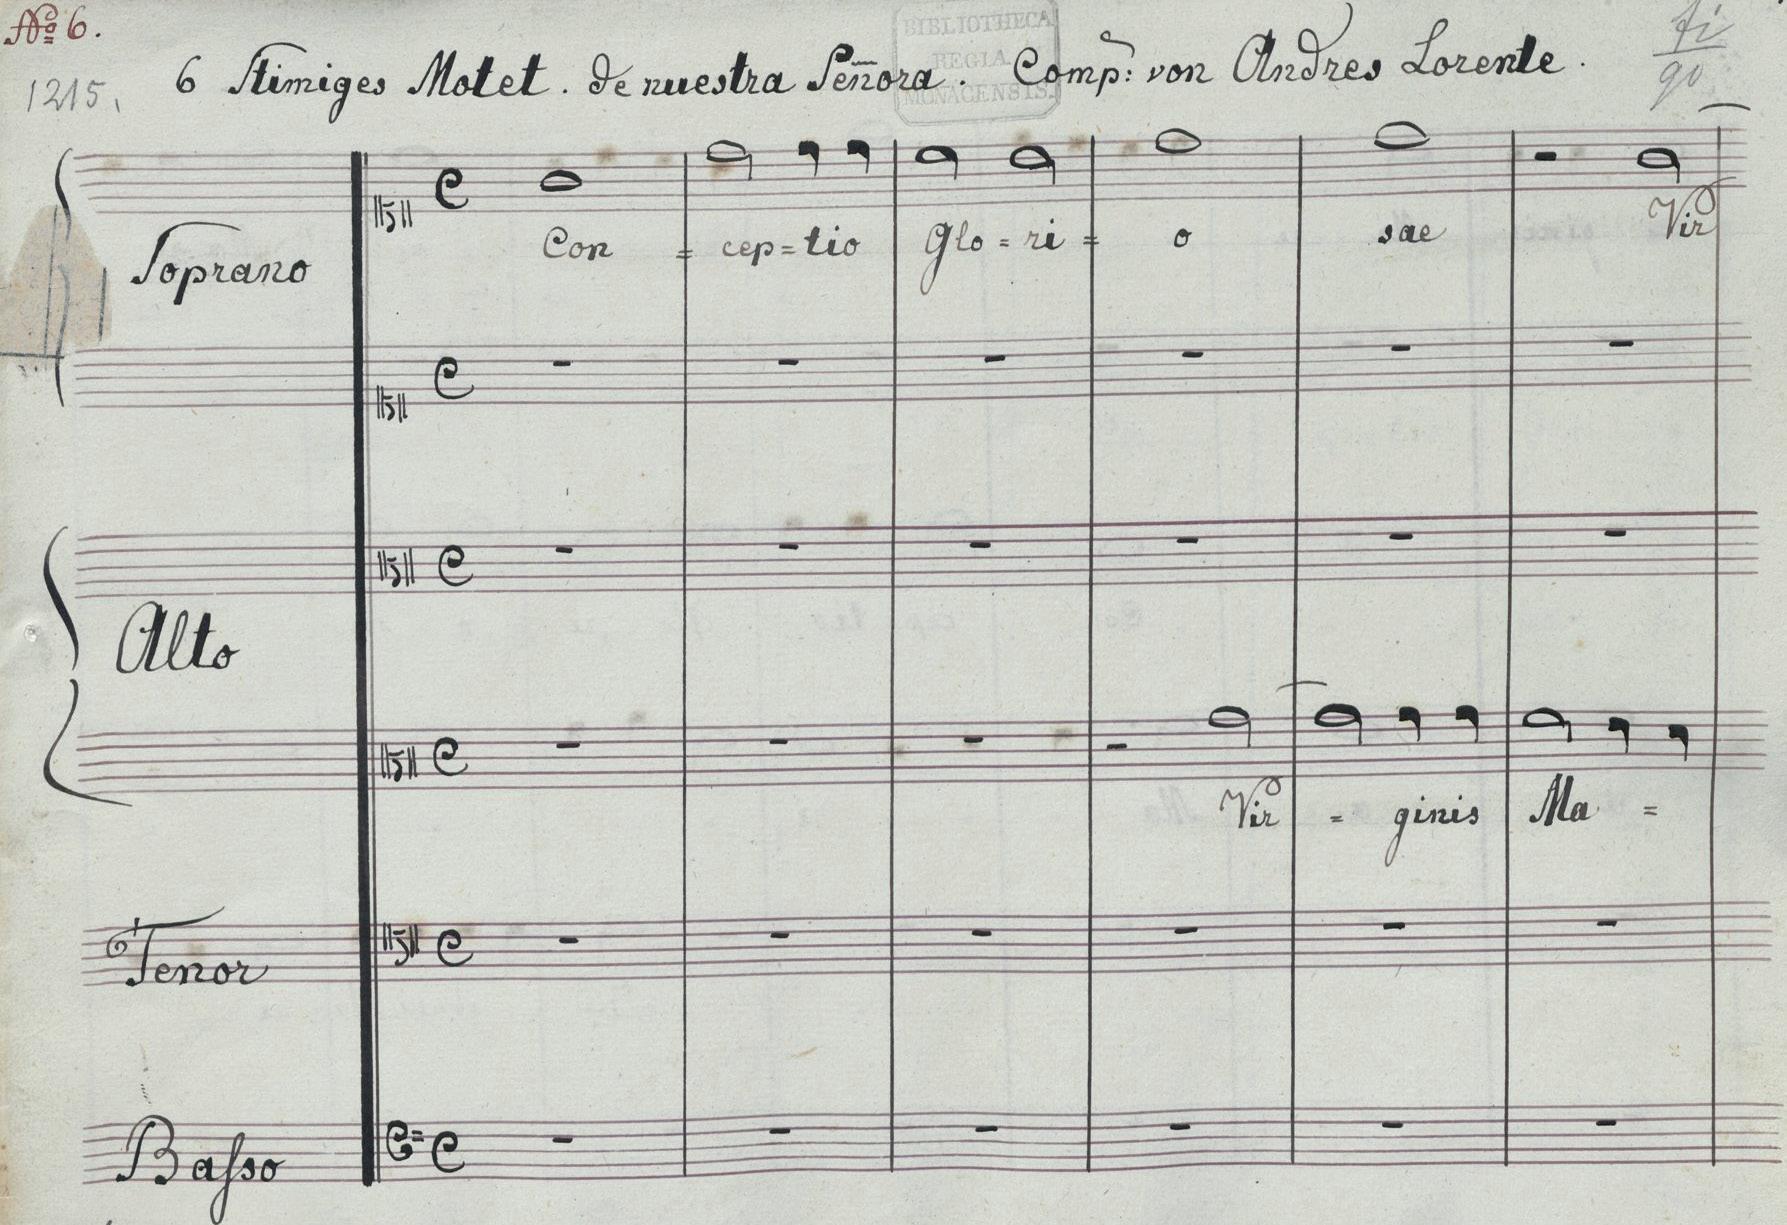 No 6.
BIBLIOTHECA
REGIA
MONACENSIS.
1215.
6 Stimiges Motet. de nuestra Señora. Comp: von Andres Lorente.
Con = cep=tio Glo=ri = o sae Vir
Soprano
Alto
Vir = ginis Ma =
Tenor
Basso